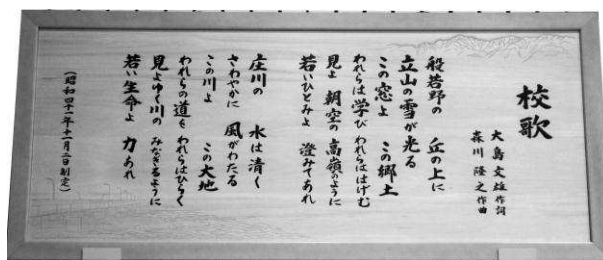 校歌
大島文雄 作詞
森川隆之 作曲
般若野の 丘の上に
立山の雪が光る
この窓よ この郷土
われらは学び われらははげむ
見よ 朝空の高嶺のように
若いひとみよ 澄みてあれ
庄川の 水は清く
さわやかに 風がわたる
この川よ この大地
われらの道を われらはひらく
見よ ゆく川の みなぎるように
若い生命よ 力あれ
(昭和四十一年十一月二日制定)